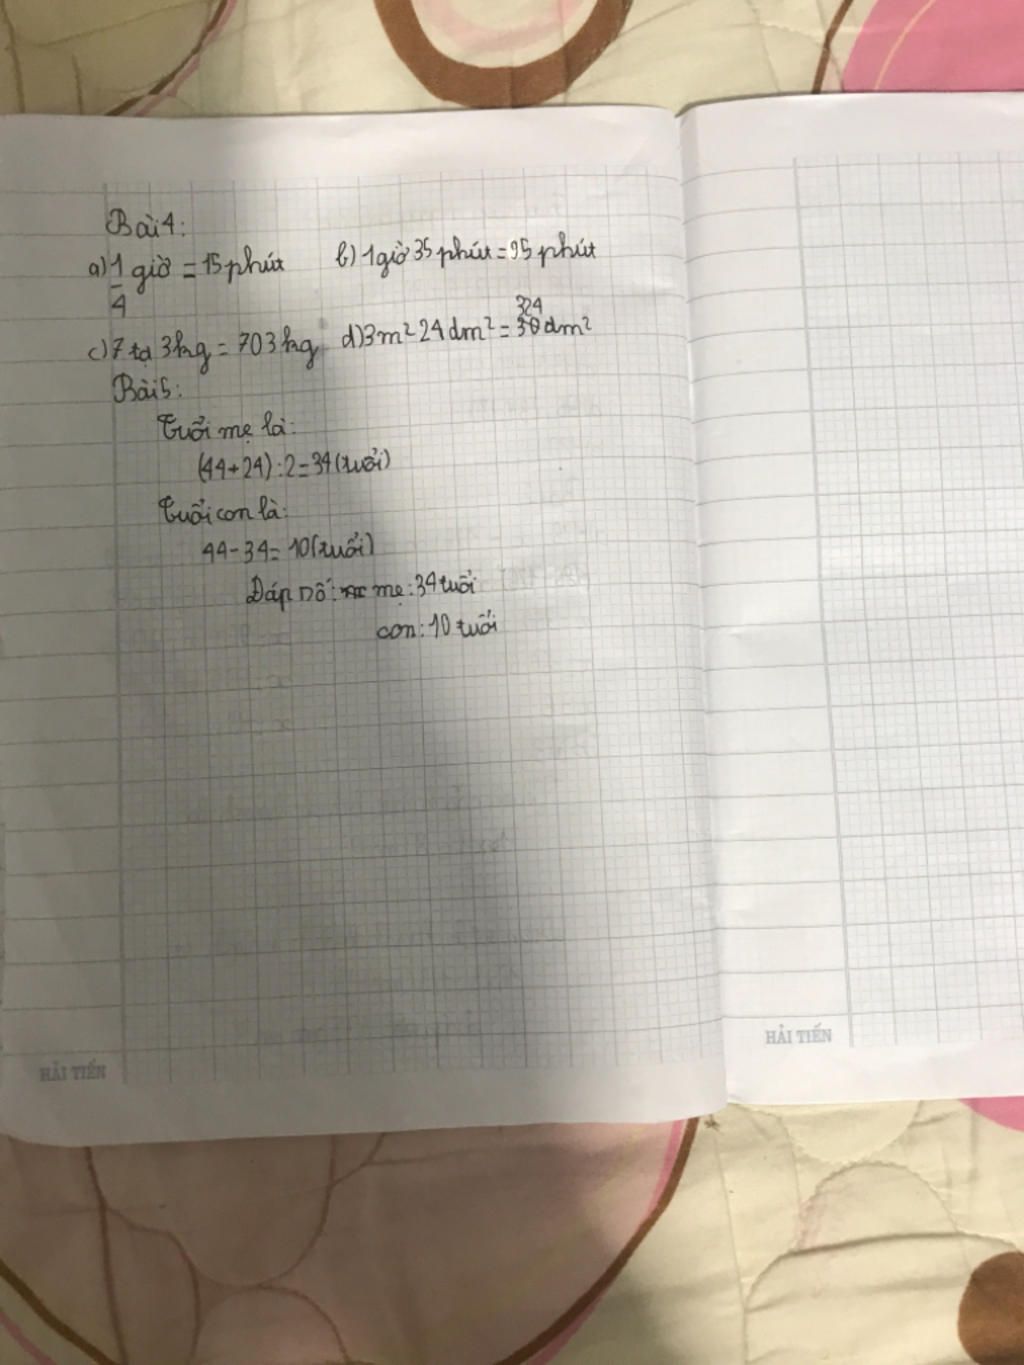 Bài 4:
a) 1/4 giờ = 15 phút b) 1 giờ 35 phút = 95 phút
324
c) 7 tạ 3 kg = 703 kg d) 3m² 24 dm² = dm²
Bài 5:
Tuổi mẹ là:
(44+24) : 2 = 34 (tuổi)
Tuổi con là:
44 - 34 = 10 (tuổi)
Đáp số: mẹ: 34 tuổi
con: 10 tuổi
HẢI TIẾN
HẢI TIẾN